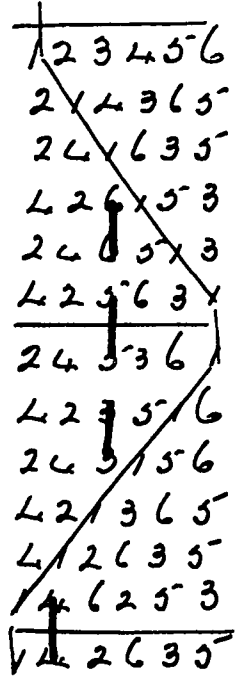 1 2 3 4 5 6
2 1 4 3 6 5
2 4 1 6 3 5
4 2 6 1 5 3
2 4 6 5 1 3
4 2 5 6 3 1
2 4 5 3 6 1
4 2 3 5 1 6
2 4 3 1 5 6
4 2 1 3 6 5
4 1 2 6 3 5
1 4 6 2 5 3
1 4 2 6 3 5